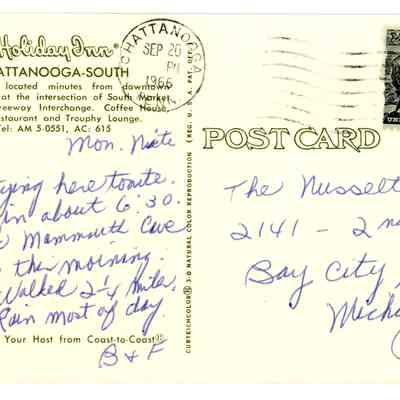 Holiday Inn®
ATTANOOGA-SOUTH
located minutes from downtown
at the intersection of South Market
eeway Interchange. Coffee House,
staurant and Trouphy Lounge.
Tel: AM 5-0551, AC: 615
CHATTANOOGA
SEP 20
PM
1966
Mon. Nite
ying here tonite.
in about 6:30.
Mammouth Cave
this morning.
Walked 2¼ mile.
Rain most of day.
B & F
Your Host from Coast-to-Coast®
CURTEICHCOLOR® 3-D NATURAL COLOR REPRODUCTION (REG. U. S. A. PAT. OFF.)
POST CARD
The Nusselt
2141 - 2n
Bay City,
Michi